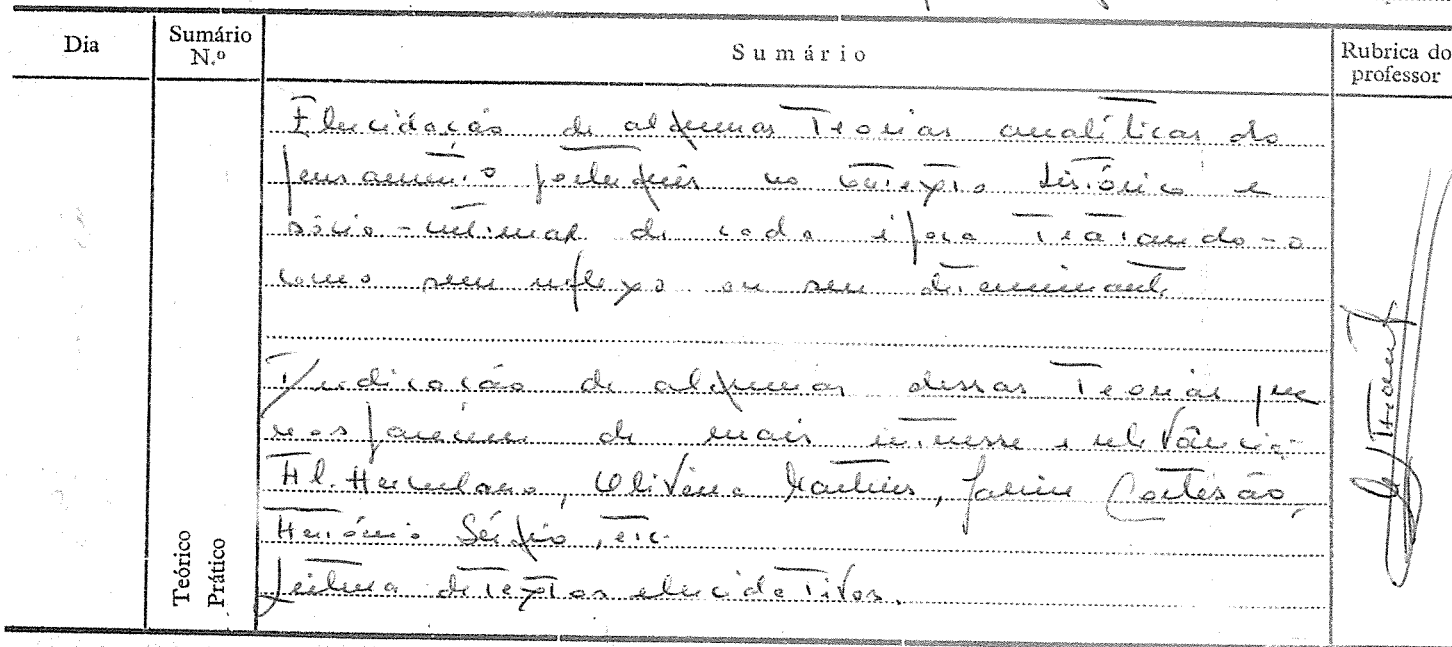 Dia
Sumário N.º
Sumário
Rubrica do professor
Elucidação de algumas Teorias analíticas do
pensamento português no contexto histórico e
sócio-cultural de cada época Tratando-o
como seu reflexo ou seu determinante
Indicação de algumas dessas Teorias que
nos parecem de mais interesse e relevância
Al. Herculano, Oliveira Martins, Jaime Cortesão,
António Sérgio, etc.
Leitura de Textos elucidativos.
Teórico
Prático